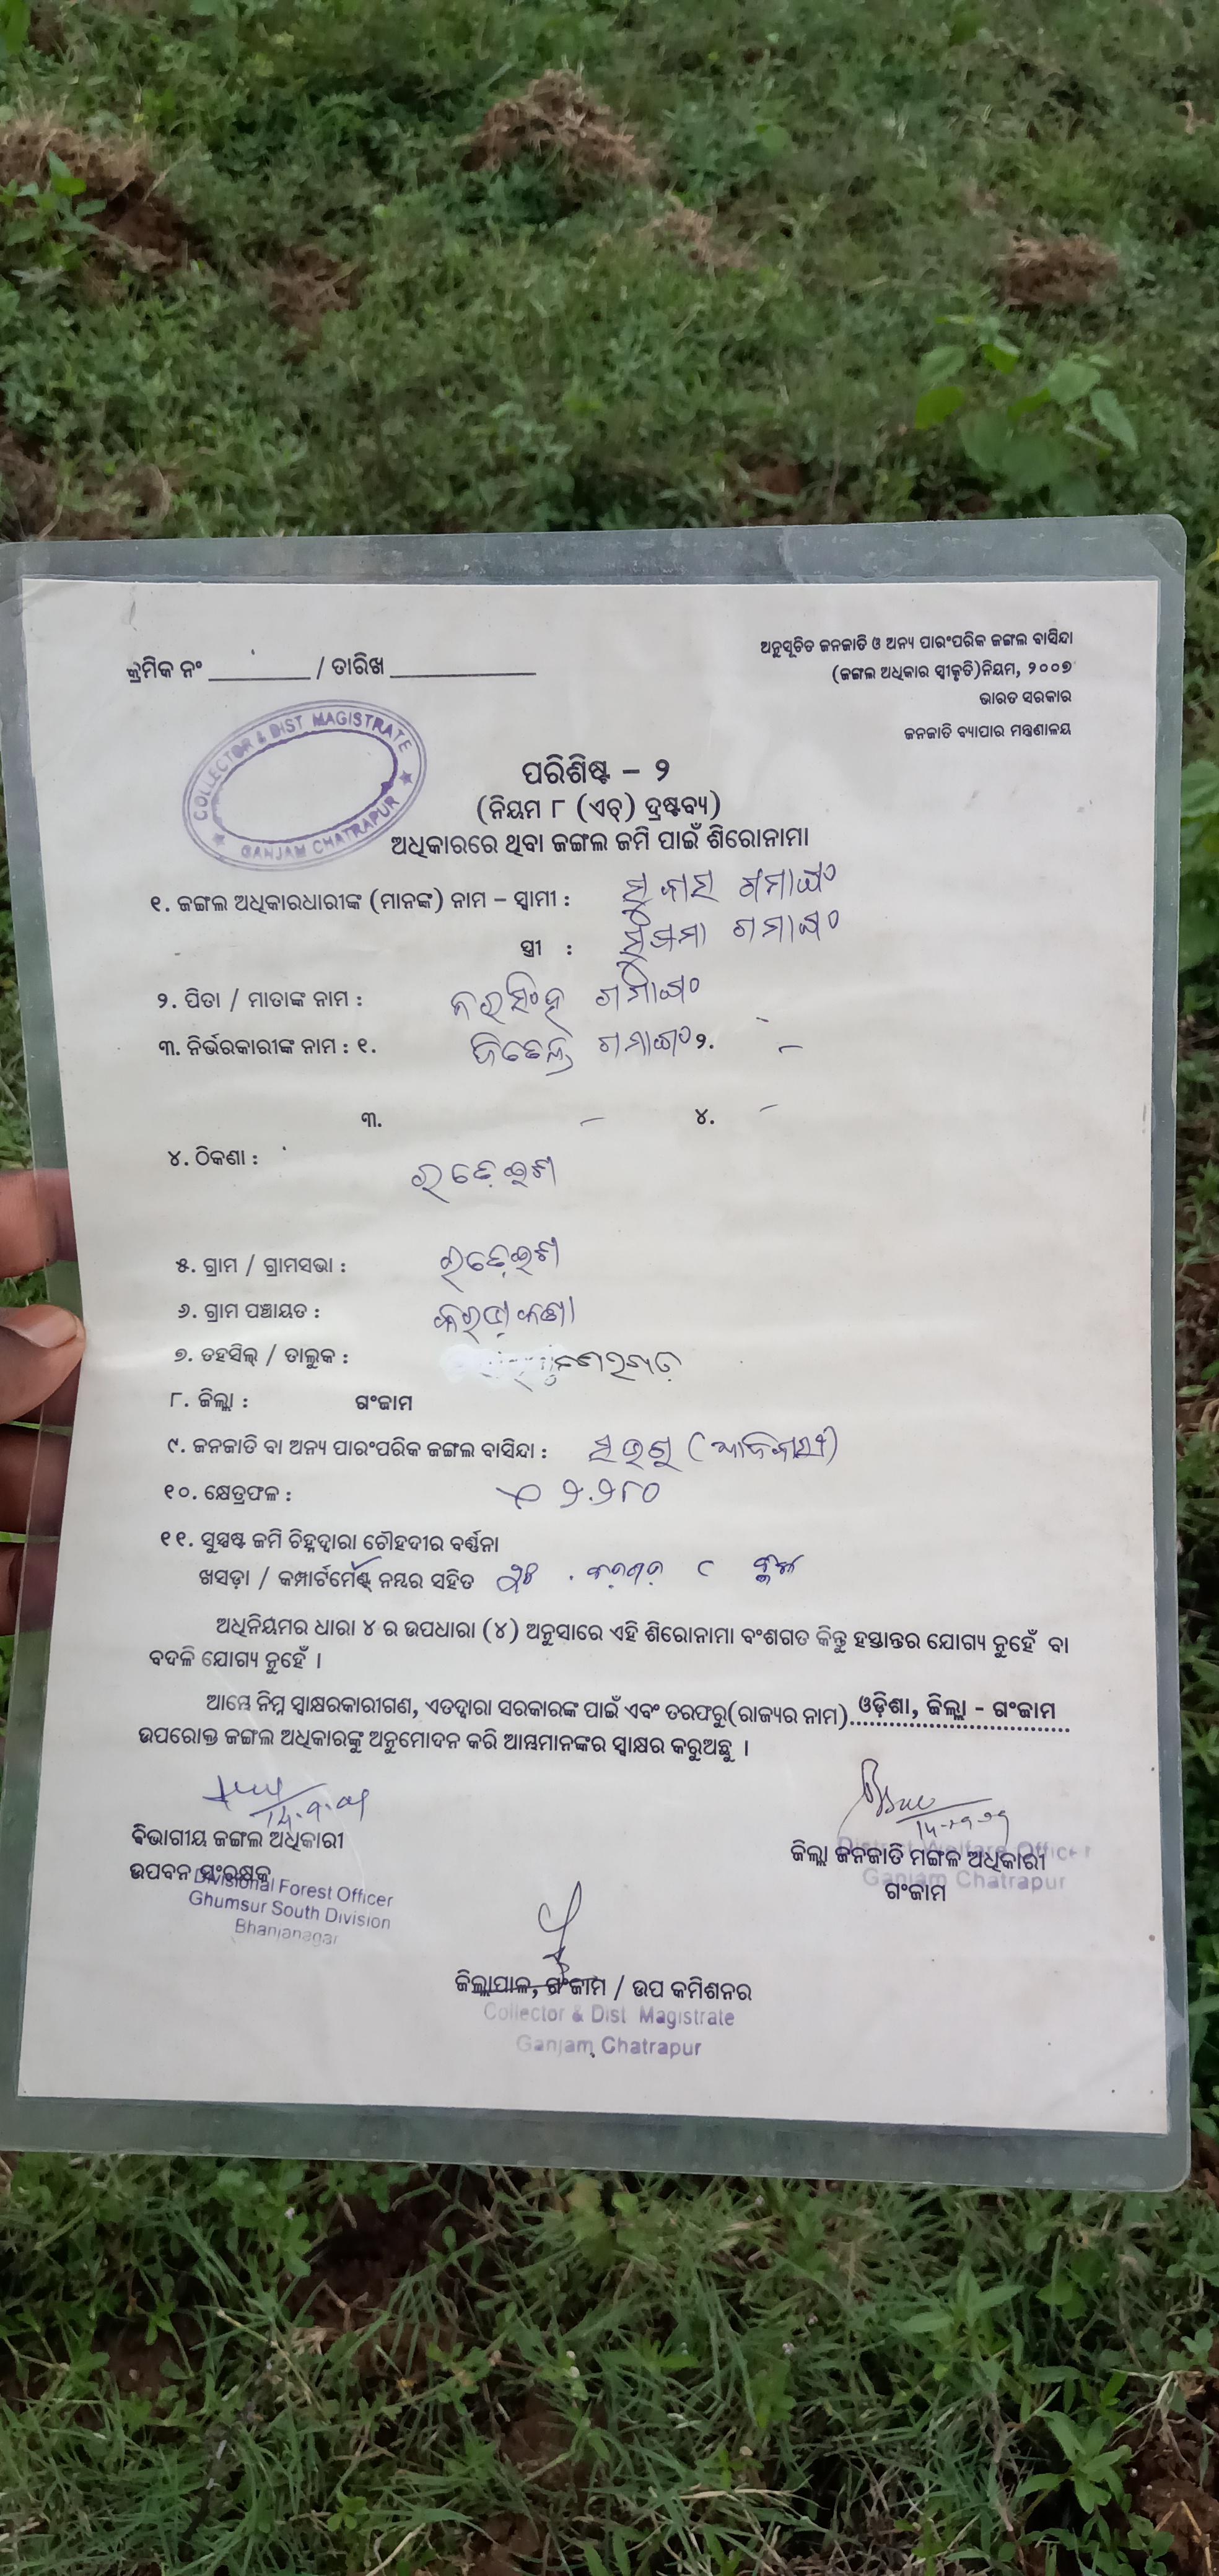 କ୍ରମିକ ନଂ ________ / ତାରିଖ ____________
ଅନୁସୂଚିତ ଜନଜାତି ଓ ଅନ୍ୟ ପାରଂପରିକ ଜଙ୍ଗଲ ବାସିନ୍ଦା
(ଜଙ୍ଗଲ ଅଧିକାର ସ୍ୱୀକୃତି)ନିୟମ, ୨୦୦୭
ଭାରତ ସରକାର
ଜନଜାତି ବ୍ୟାପାର ମନ୍ତ୍ରଣାଳୟ
COLLECTOR & DIST MAGISTRATE
GANJAM CHATRAPUR
ପରିଶିଷ୍ଟ – ୨
(ନିୟମ ୮ (ଏଚ୍) ଦ୍ରଷ୍ଟବ୍ୟ)
ଅଧିକାରରେ ଥିବା ଜଙ୍ଗଲ ଜମି ପାଇଁ ଶିରୋନାମା
୧. ଜଙ୍ଗଲ ଅଧିକାରଧାରୀଙ୍କ (ମାନଙ୍କ) ନାମ – ସ୍ୱାମୀ : ଗମାଙ୍ଗ
ସ୍ତ୍ରୀ : ଗମାଙ୍ଗ
୨. ପିତା / ମାତାଙ୍କ ନାମ : ଗମାଙ୍ଗ
୩. ନିର୍ଭରକାରୀଙ୍କ ନାମ : ୧. ଗମାଙ୍ଗ ୨. –
୩. – ୪. –
୪. ଠିକଣା :
୫. ଗ୍ରାମ / ଗ୍ରାମସଭା :
୬. ଗ୍ରାମ ପଞ୍ଚାୟତ :
୭. ତହସିଲ୍ / ତାଲୁକ :
୮. ଜିଲ୍ଲା : ଗଂଜାମ
୯. ଜନଜାତି ବା ଅନ୍ୟ ପାରଂପରିକ ଜଙ୍ଗଲ ବାସିନ୍ଦା : (ଆଦିବାସୀ)
୧୦. କ୍ଷେତ୍ରଫଳ : ୨.୨୮୦
୧୧. ସୁସ୍ପଷ୍ଟ ଜମି ଚିହ୍ନଦ୍ୱାରା ଚୌହଦୀର ବର୍ଣ୍ଣନା
ଖସଡ଼ା / କମ୍ପାର୍ଟମେଣ୍ଟ ନମ୍ବର ସହିତ
ଅଧିନିୟମର ଧାରା ୪ ର ଉପଧାରା (୪) ଅନୁସାରେ ଏହି ଶିରୋନାମା ବଂଶଗତ କିନ୍ତୁ ହସ୍ତାନ୍ତର ଯୋଗ୍ୟ ନୁହେଁ ବା
ବଦଳି ଯୋଗ୍ୟ ନୁହେଁ ।
ଆମ୍ଭେ ନିମ୍ନ ସ୍ୱାକ୍ଷରକାରୀଗଣ, ଏତଦ୍ୱାରା ସରକାରଙ୍କ ପାଇଁ ଏବଂ ତରଫରୁ(ରାଜ୍ୟର ନାମ) ଓଡ଼ିଶା, ଜିଲ୍ଲା - ଗଂଜାମ
ଉପରୋକ୍ତ ଜଙ୍ଗଲ ଅଧିକାରଙ୍କୁ ଅନୁମୋଦନ କରି ଆମ୍ଭମାନଙ୍କର ସ୍ୱାକ୍ଷର କରୁଅଛୁ ।
ବିଭାଗୀୟ ଜଙ୍ଗଲ ଅଧିକାରୀ
ଉପବନ ସଂରକ୍ଷକ
Divisional Forest Officer
Ghumsur South Division
Bhanjanagar
ଜିଲ୍ଲା ଜନଜାତି ମଙ୍ଗଳ ଅଧିକାରୀ
District Welfare Officer
Ganjam Chatrapur
ଗଂଜାମ
ଜିଲ୍ଲାପାଳ, ଗଂଜାମ / ଉପ କମିଶନର
Collector & Dist Magistrate
Ganjam, Chatrapur